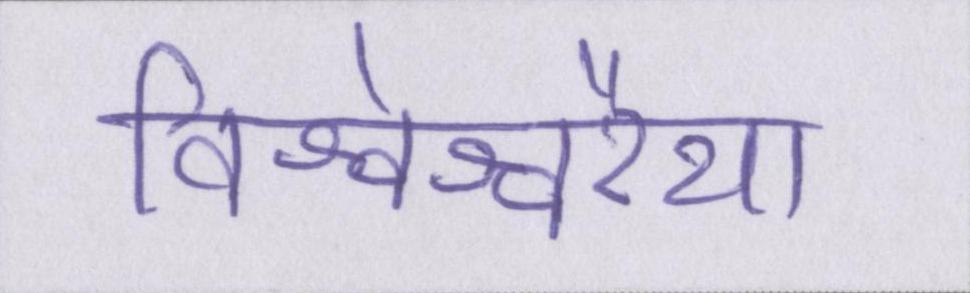 विश्वेश्वरैया